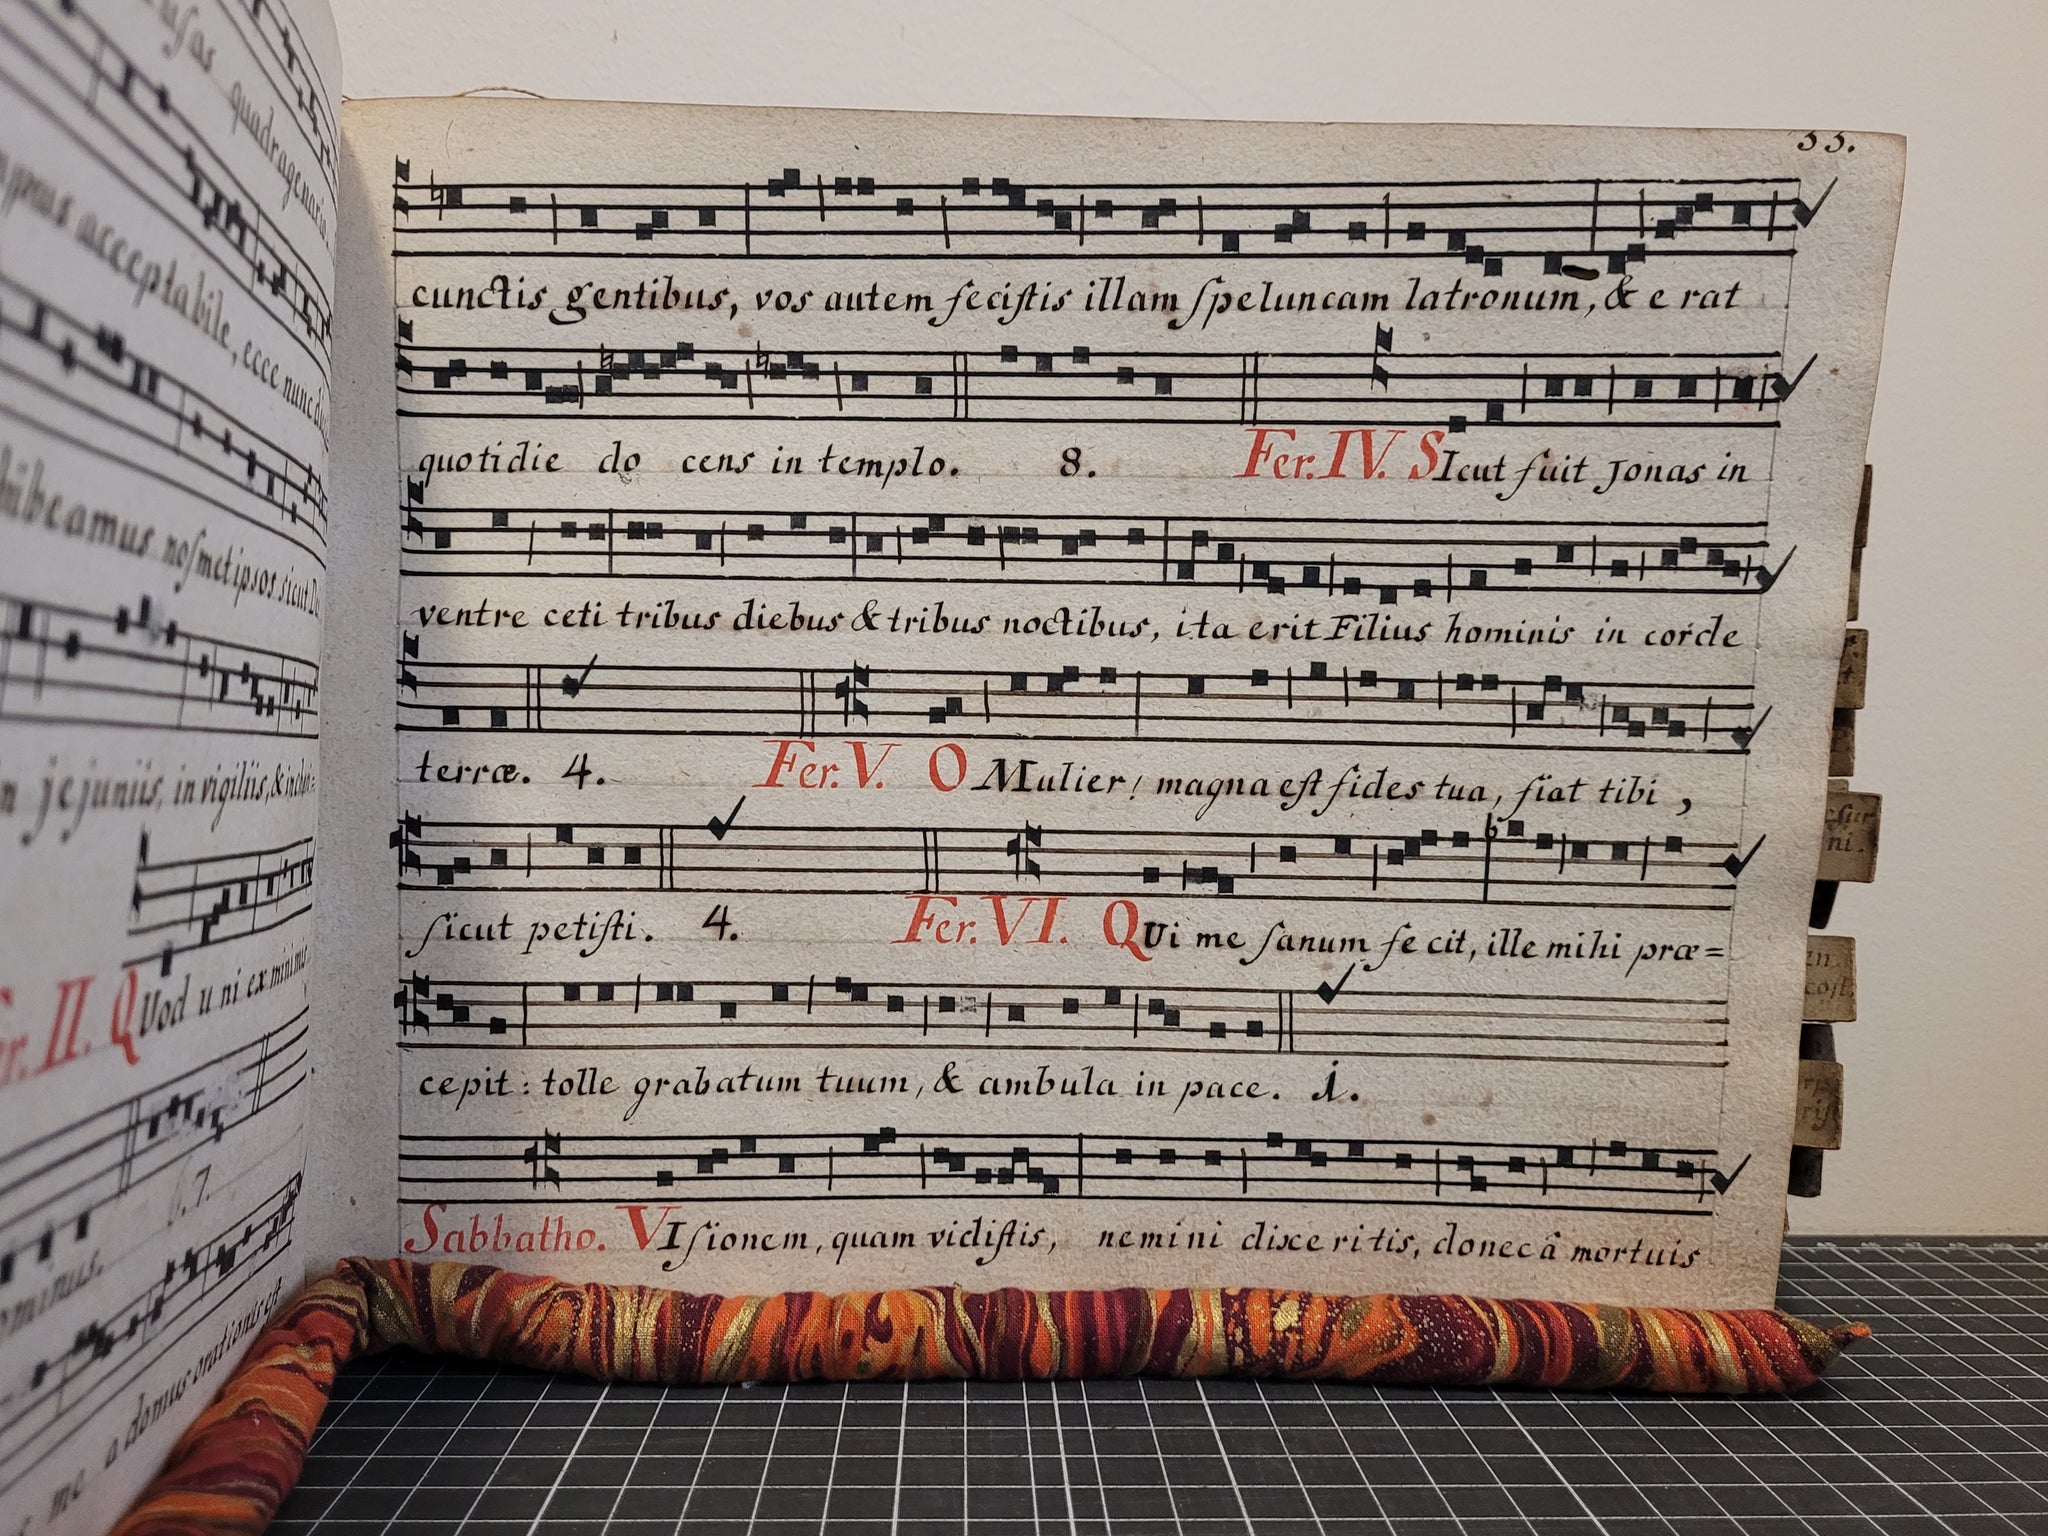 quadragenaria
acceptabile, ecce nunc
hibeamus nosmetipsos sicut
in jejuniis, in vigiliis, &
II. QUod uni ex minimis
6. 7.
me a domus orationis est
33.
cunctis gentibus, vos autem fecistis illam speluncam latronum, & erat
quotidie do cens in templo. 8. Fer. IV. SIcut fuit Jonas in
ventre ceti tribus diebus & tribus noctibus, ita erit Filius hominis in corde
terræ. 4. Fer. V. O Mulier! magna est fides tua, fiat tibi,
sicut petisti. 4. Fer. VI. QUi me sanum fecit, ille mihi præ=
cepit: tolle grabatum tuum, & ambula in pace. i.
Sabbatho. VIsionem, quam vidistis, nemini dixeritis, donec â mortuis